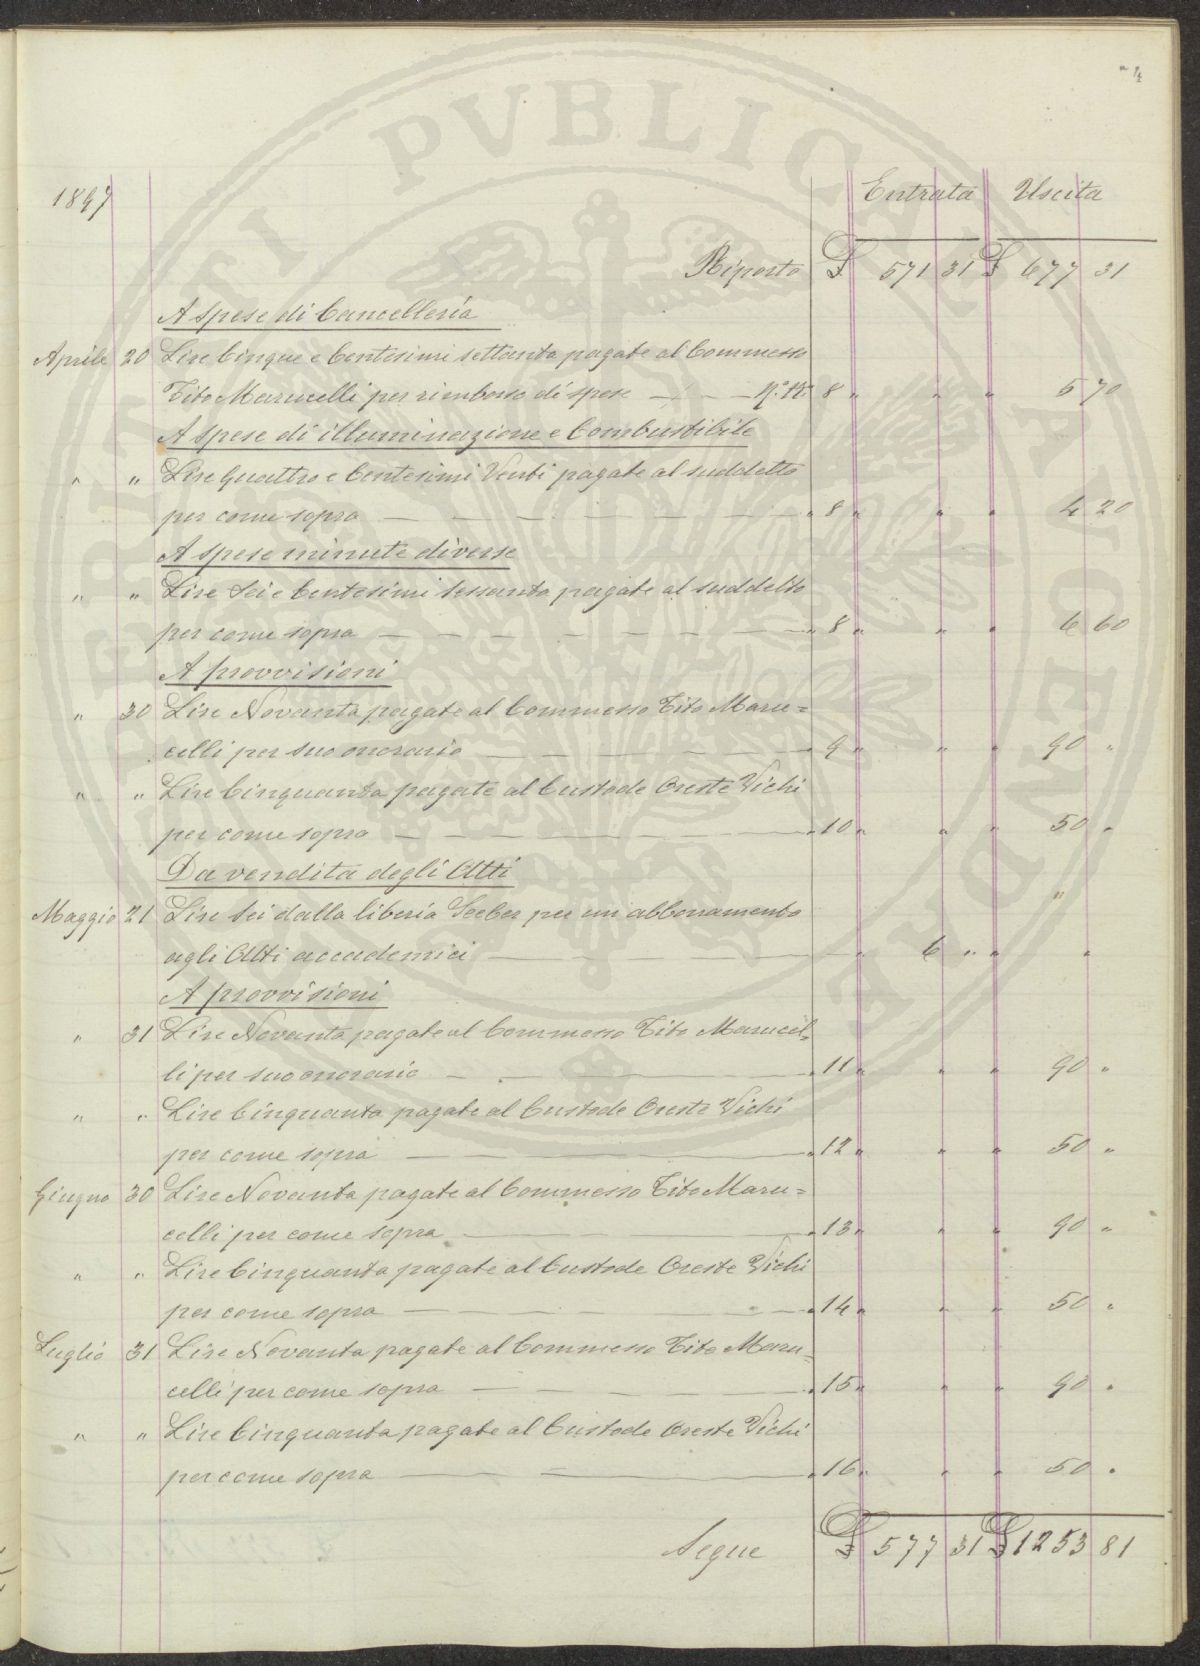 4
1897 Entrata Uscita
Riporto £ 571 31 £ 677 31
A spese di Cancelleria
Aprile 20 Lire Cinque e Centesimi settanta pagate al Commesso
Tito Marucelli per rimborso di spese — N.º R. 8 " " " 5 70
A spese di illuminazione e Combustibile
" " Lire Quattro e Centesimi Venti pagate al suddetto
per come sopra — " 8 " " " 4 20
A spese minute diverse
" " Lire Sei e Centesimi sessanta pagate al suddetto
per come sopra — " 8 " " " 6 60
A provvisioni
" 30 Lire Novanta pagate al Commesso Tito Maru=
celli per suo onorario — " 9 " " " 90 "
" " Lire Cinquanta pagate al Custode Oreste Vichi
per come sopra — " 10 " " " 50 "
Da vendita degli Atti
Maggio 21 Lire Sei dalla libreria Seeber per un abbonamento "
agli Atti accademici — " 6 " " "
A provvisioni
" 31 Lire Novanta pagate al Commesso Tito Marucel=
li per suo onorario — " 11 " " " 90 "
" " Lire Cinquanta pagate al Custode Oreste Vichi
per come sopra — " 12 " " " 50 "
Giugno 30 Lire Novanta pagate al Commesso Tito Maru=
celli per come sopra — " 13 " " " 90 "
" " Lire Cinquanta pagate al Custode Oreste Vichi
per come sopra — " 14 " " " 50 "
Luglio 31 Lire Novanta pagate al Commesso Tito Maru=
celli per come sopra — " 15 " " " 90 "
" " Lire Cinquanta pagate al Custode Oreste Vichi
per come sopra — " 16 " " " 50 "
Segue £ 577 31 £ 1253 81